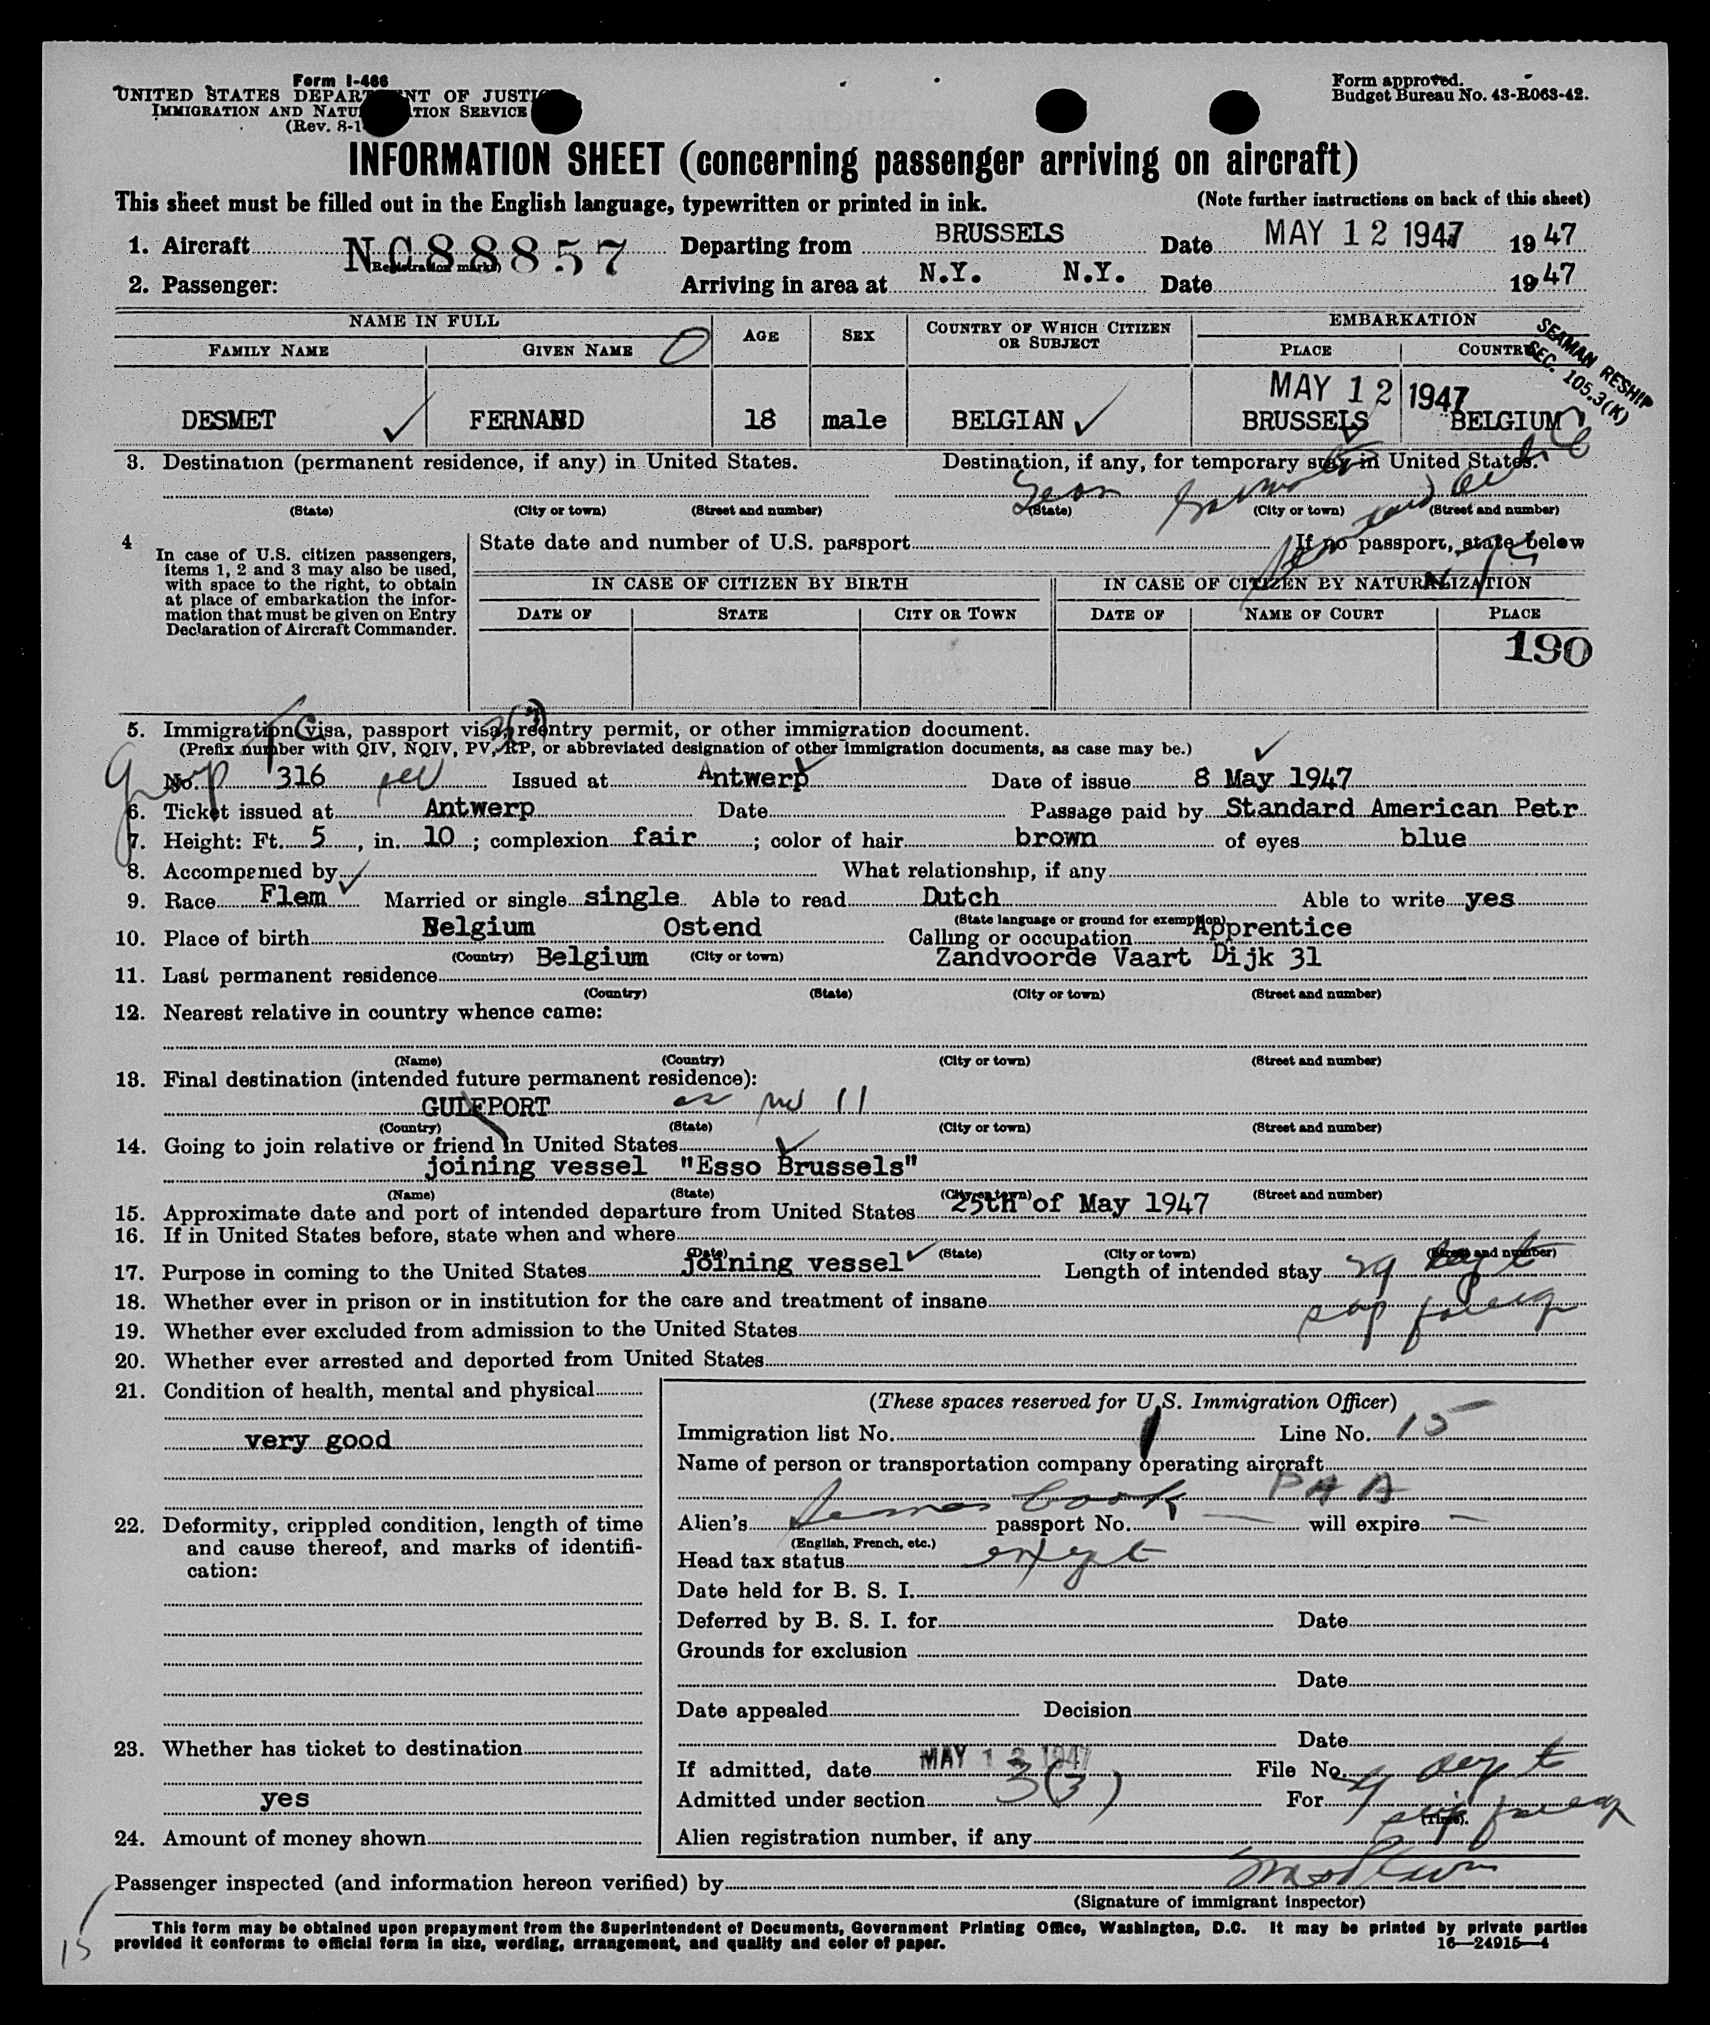 Form I-466
UNITED STATES DEPARTMENT OF JUSTICE
IMMIGRATION AND NATURALIZATION SERVICE
(Rev. 8-1
Form approved.
Budget Bureau No. 43-R063-42.
INFORMATION SHEET (concerning passenger arriving on aircraft)
This sheet must be filled out in the English language, typewritten or printed in ink. (Note further instructions on back of this sheet)
1. Aircraft NC88857 Departing from BRUSSELS Date MAY 12 1947 1947
(Registration marks)
2. Passenger: Arriving in area at N.Y. N.Y. Date 1947
NAME IN FULL AGE SEX COUNTRY OF WHICH CITIZEN OR SUBJECT EMBARKATION
FAMILY NAME GIVEN NAME PLACE COUNTRY
SEAMAN RESHIP
SEC. 105.3(K)
MAY 12 1947
DESMET FERNAND 18 male BELGIAN BRUSSELS BELGIUM
3. Destination (permanent residence, if any) in United States. Destination, if any, for temporary stay in United States.
(State) (City or town) (Street and number) (State) (City or town) (Street and number)
4 In case of U.S. citizen passengers, items 1, 2 and 3 may also be used, with space to the right, to obtain at place of embarkation the information that must be given on Entry Declaration of Aircraft Commander.
State date and number of U.S. passport If no passport, state below
IN CASE OF CITIZEN BY BIRTH IN CASE OF CITIZEN BY NATURALIZATION
DATE OF STATE CITY OR TOWN DATE OF NAME OF COURT PLACE
190
5. Immigration visa, passport visa, reentry permit, or other immigration document.
(Prefix number with QIV, NQIV, PV, RP, or abbreviated designation of other immigration documents, as case may be.)
No. 316 Issued at Antwerp Date of issue 8 May 1947
6. Ticket issued at Antwerp Date Passage paid by Standard American Petr.
7. Height: Ft. 5, in. 10; complexion fair; color of hair brown of eyes blue
8. Accompanied by What relationship, if any
9. Race Flem Married or single single Able to read Dutch Able to write yes
(State language or ground for exemption)
10. Place of birth Belgium Ostend Calling or occupation Apprentice
(Country) (City or town)
11. Last permanent residence Belgium Zandvoorde Vaart Dijk 31
(Country) (State) (City or town) (Street and number)
12. Nearest relative in country whence came:
(Name) (Country) (City or town) (Street and number)
13. Final destination (intended future permanent residence):
GULFPORT as no 11
(Country) (State) (City or town) (Street and number)
14. Going to join relative or friend in United States
joining vessel "Esso Brussels"
(Name) (State) (City or town) (Street and number)
15. Approximate date and port of intended departure from United States 25th of May 1947
16. If in United States before, state when and where
(Date) (State) (City or town) (Street and number)
17. Purpose in coming to the United States joining vessel Length of intended stay 29 days
18. Whether ever in prison or in institution for the care and treatment of insane
19. Whether ever excluded from admission to the United States
20. Whether ever arrested and deported from United States
21. Condition of health, mental and physical
very good
22. Deformity, crippled condition, length of time and cause thereof, and marks of identification:
23. Whether has ticket to destination
yes
24. Amount of money shown
(These spaces reserved for U.S. Immigration Officer)
Immigration list No. 1 Line No. 15
Name of person or transportation company operating aircraft
PAA
Alien's Seamans book passport No. — will expire —
(English, French, etc.)
Head tax status exempt
Date held for B. S. I.
Deferred by B. S. I. for Date
Grounds for exclusion
Date
Date appealed Decision
Date
If admitted, date MAY 12 1947 File No.
Admitted under section 3(3) For
(Time).
Alien registration number, if any
Passenger inspected (and information hereon verified) by
(Signature of immigrant inspector)
This form may be obtained upon prepayment from the Superintendent of Documents, Government Printing Office, Washington, D.C. It may be printed by private parties
provided it conforms to official form in size, wording, arrangement, and quality and color of paper. 16—24915-4
15